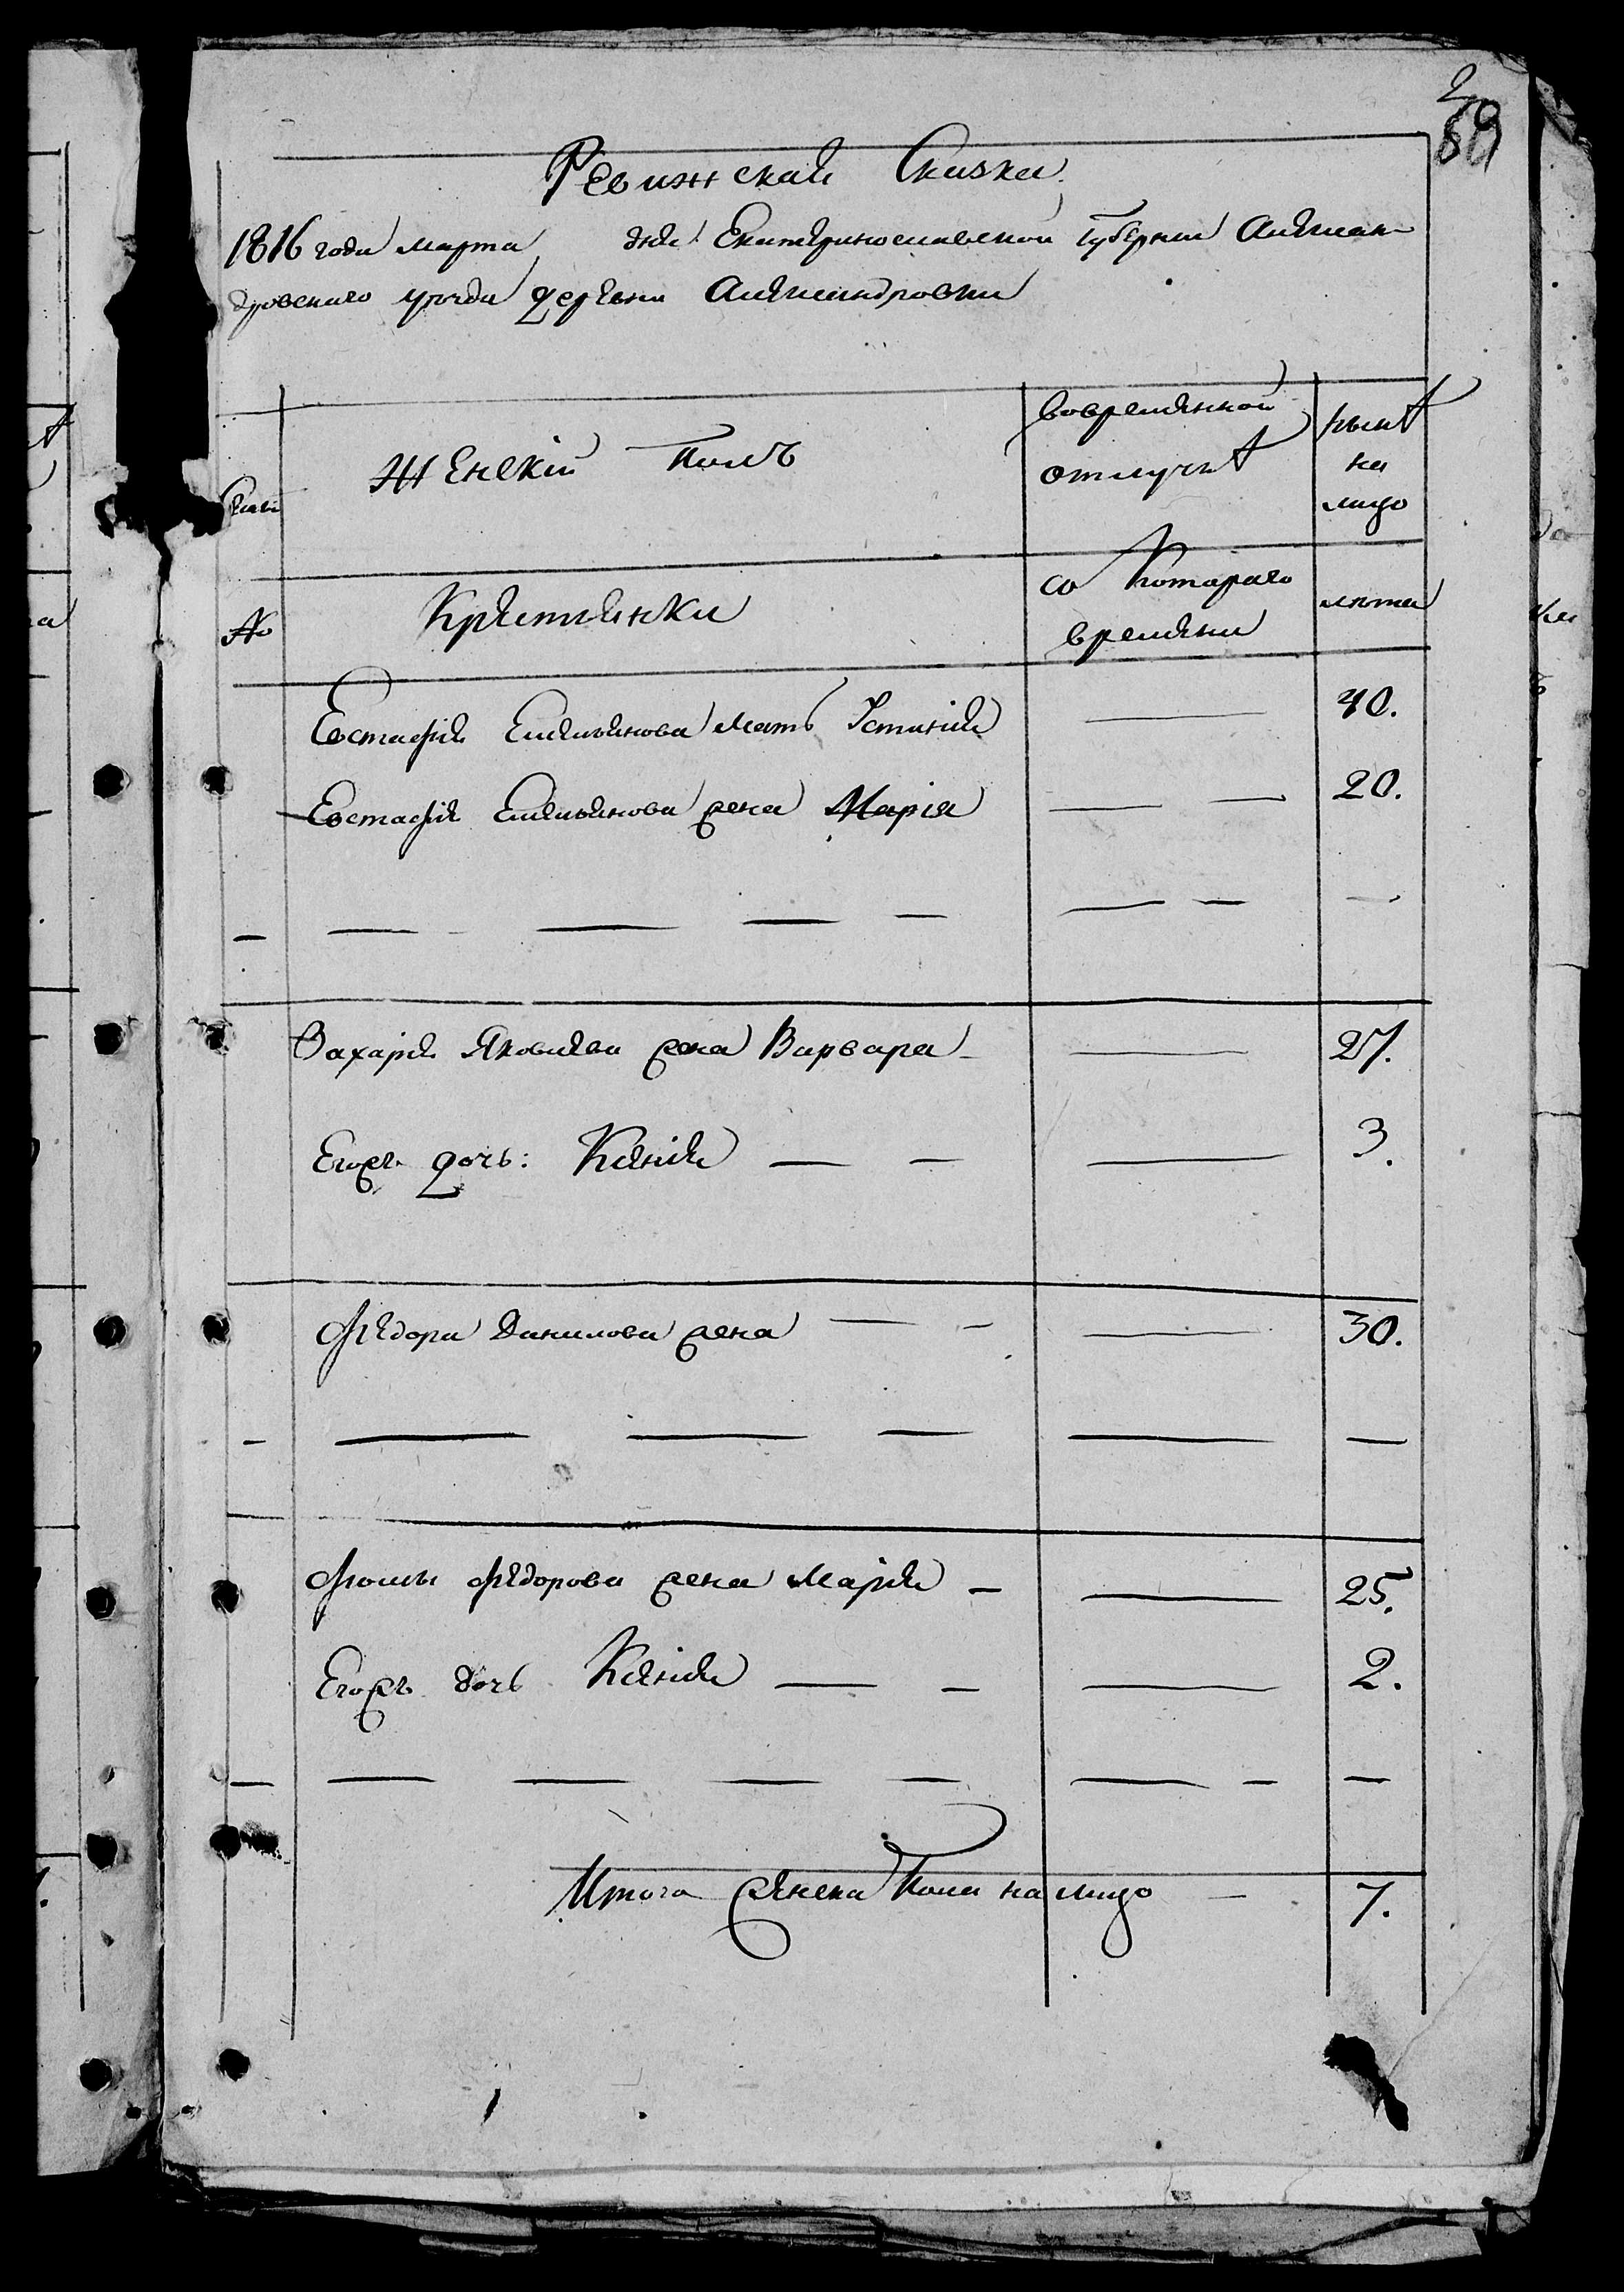 2
69
Ревижская Сказка.
1816 года марта дня Екатеринославской Губернии Алексан-
дровского уезда деревни Александровки
Женскій Полъ
вовременной
отлучкѣ
нынѣ
на
лицо
№
Крестьянки
со котораго
времяни
лѣта
Евстафія Емельянова мать Устинія 40.
Евстафія Емельянова жена Марія 20.
Захарія Яковлева жена Варвара 27.
Егожъ дочь: Ксенія 3.
Федора Данилова жена 30.
Фомы Федорова жена Марія 25.
Егожъ дочь Ксенія 2.
Итого женска Пола на лицо 7.